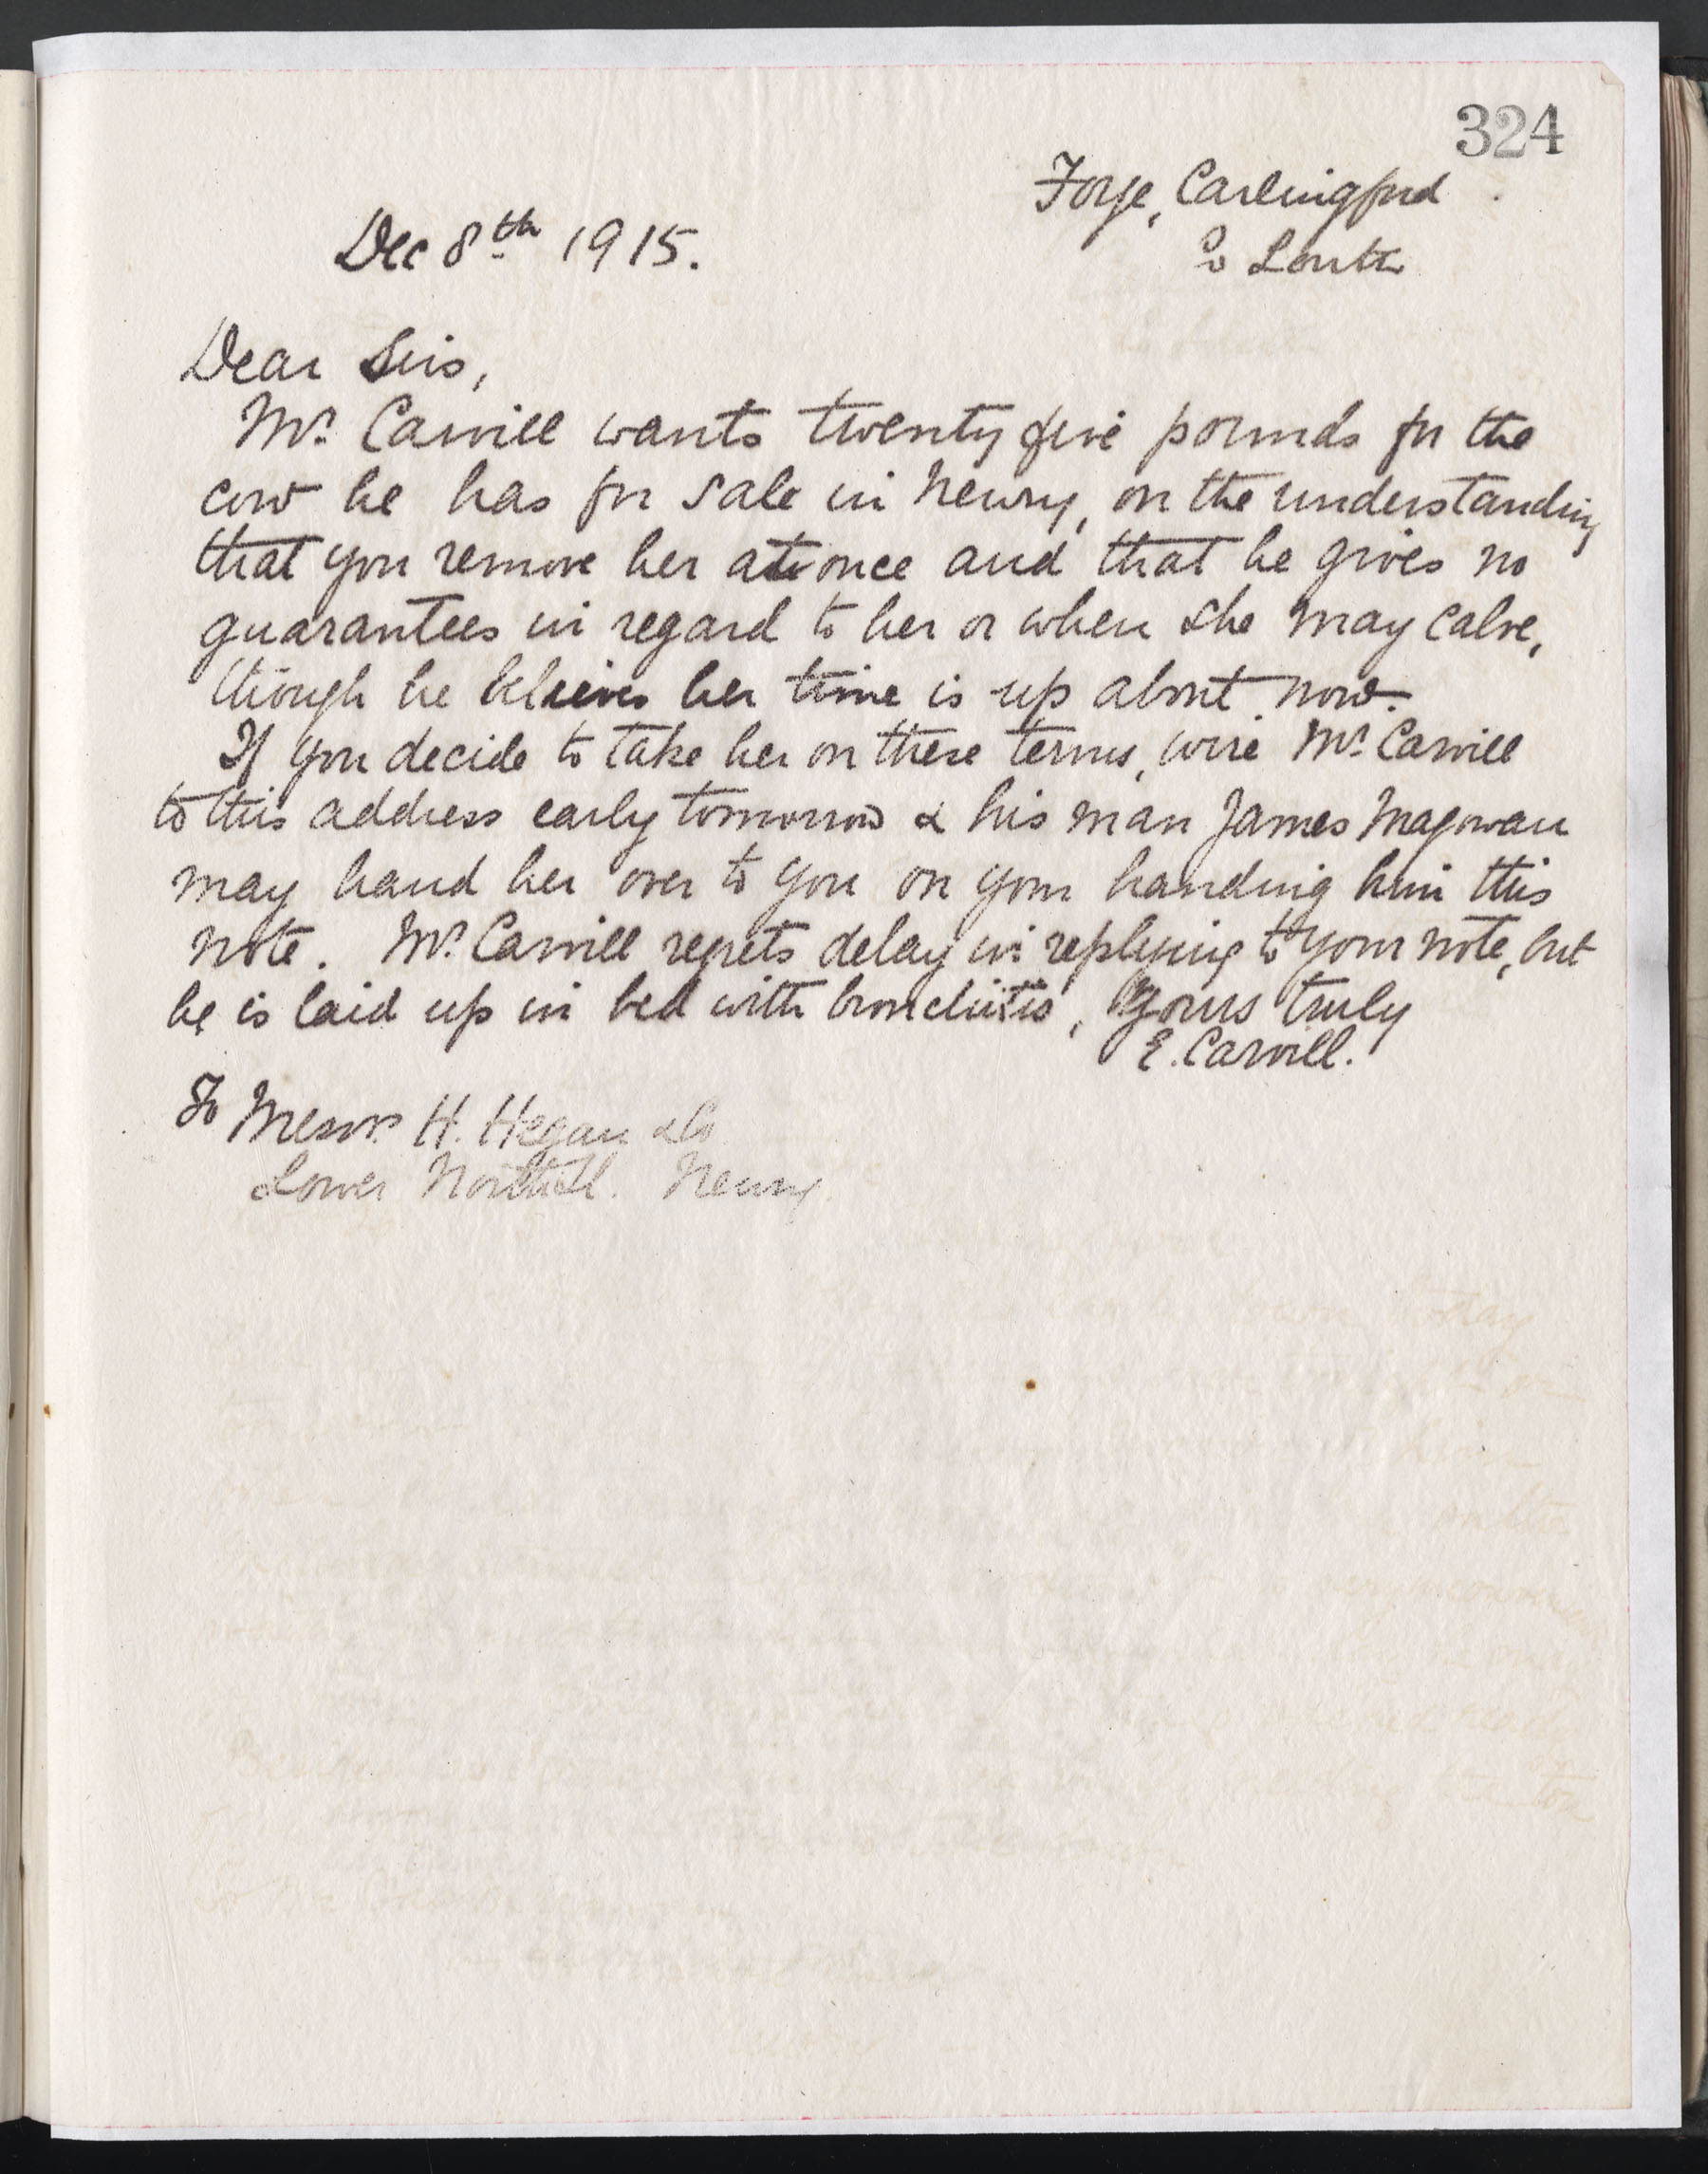 324
Forge, Carlingford
Co Louth
Dec 8th 1915.
Dear Sirs,
Mr. Carvill wants twenty five pounds for the
cow he has for sale in Newry, on the understanding
that you remove her at once and that he gives no
guarantees in regard to her or when she may calve,
though he believes her time is up about now.
If you decide to take her on these terms, wire Mr. Carvill
to this address early tomorrow & his man James Magowan
may hand her over to you on your handing him this
note. Mr. Carvill regrets delay in replying to your note, but
he is laid up in bed with bronchitis, Yours truly
E. Carvill.
To Messrs. H. Hegan & Co
Lower North St. Newry